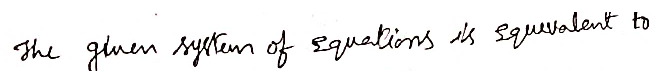 The given system of equations is equivalent to